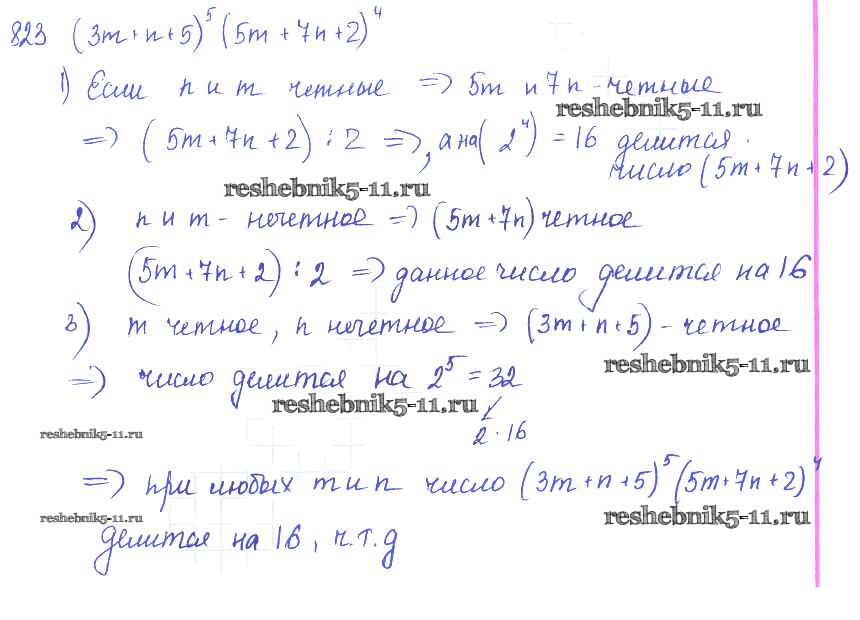 823 (3m+n+5)⁵ (5m+7n+2)⁴
1) Если n и m четные => 5m и 7n - четные
reshebnik5-11.ru
=> (5m+7n+2) ⋮ 2 =>, а на (2⁴) = 16 делится
число (5m+7n+2)
reshebnik5-11.ru
2) n и m - нечетное => (5m+7n) четное
(5m+7n+2) ⋮ 2 => данное число делится на 16
3) m четное, n нечетное => (3m+n+5) - четное
reshebnik5-11.ru
=> число делится на 2⁵ = 32
reshebnik5-11.ru
reshebnik5-11.ru
2·16
=> при любых m и n число (3m+n+5)⁵ (5m+7n+2)⁴
reshebnik5-11.ru
reshebnik5-11.ru
делится на 16, ч.т.д